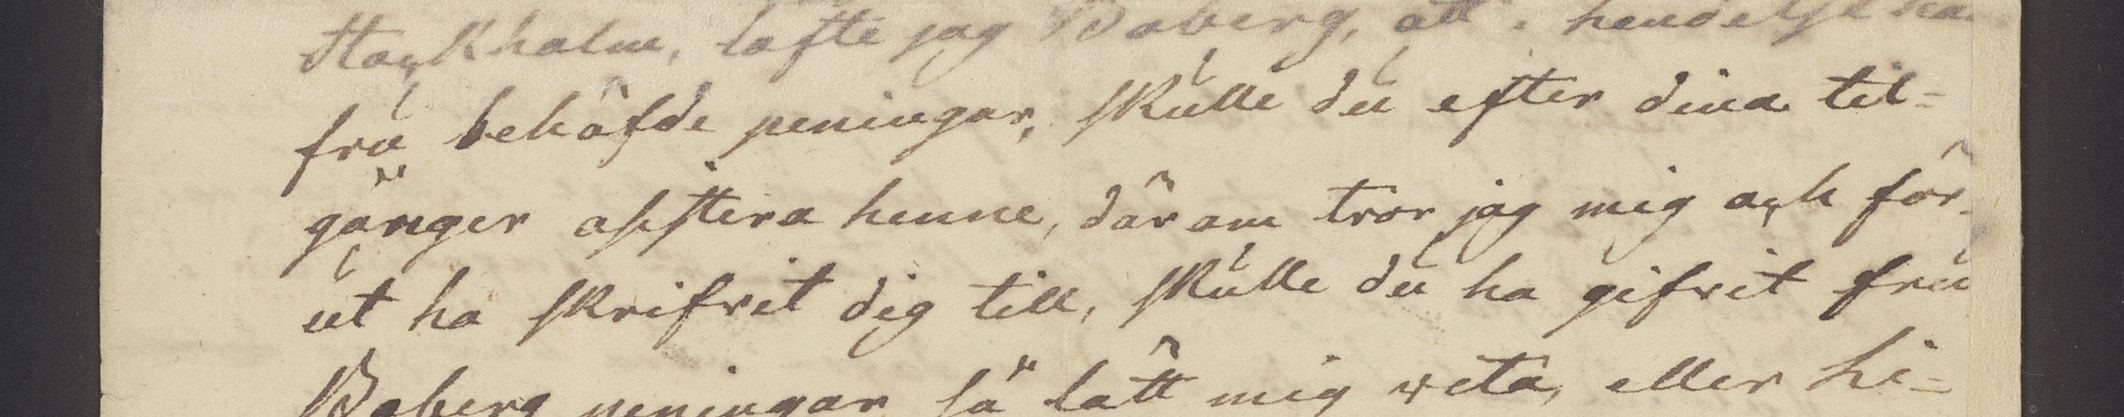 Stockholm, lofte jag Boberg, att i hendelse han
fru behöfde peningar, skulle du efter dina til-
gånger assistera henne, därom tror jag mig ock för-
ut ha skrifvit dig till, skulle du ha gifvit fru
Boberg peningar så lätt mig veta, eller hi-